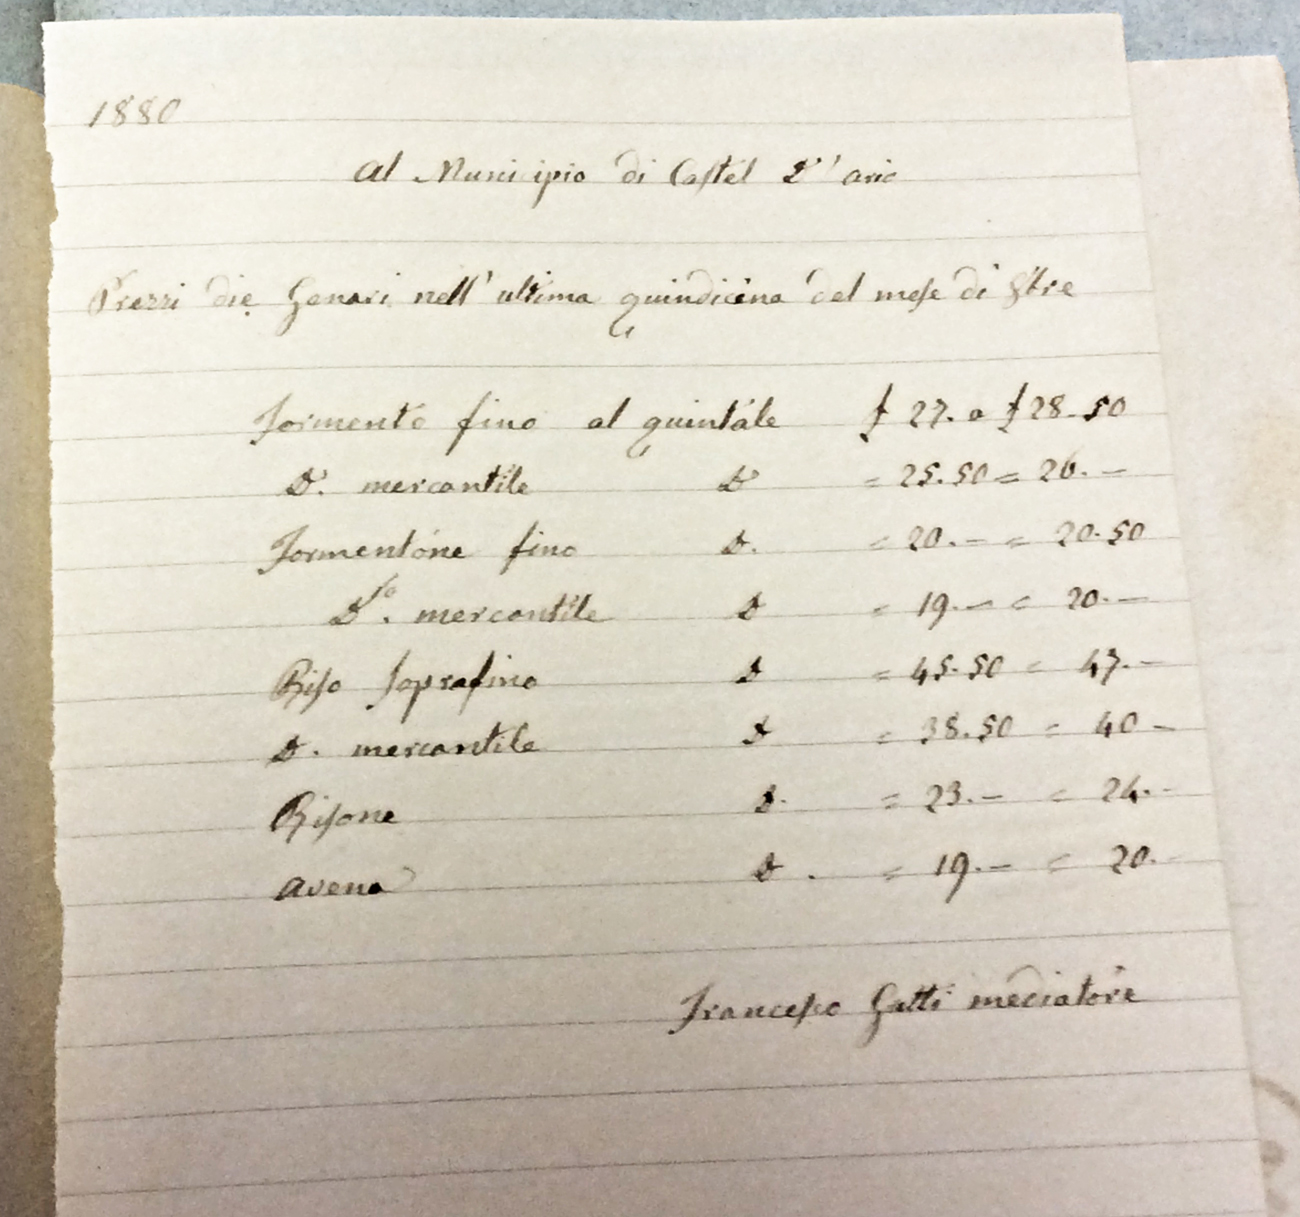 1880
Al Municipio di Castel D'ario
Prezzi die Genari nell'ultima quindicina del mese di
Formento fino al quintale £ 27. a £ 28.50
D. mercantile D = 25.50 = 26. —
Formentone fino D. = 20. — = 20.50
Dto. mercantile D = 19. — = 20. —
Riso soprafino D = 45.50 = 47. —
D. mercantile D = 38.50 = 40 —
Risone D. = 23. — = 24. —
Avena D. = 19. — = 20. —
Francesco Gatti mediatore